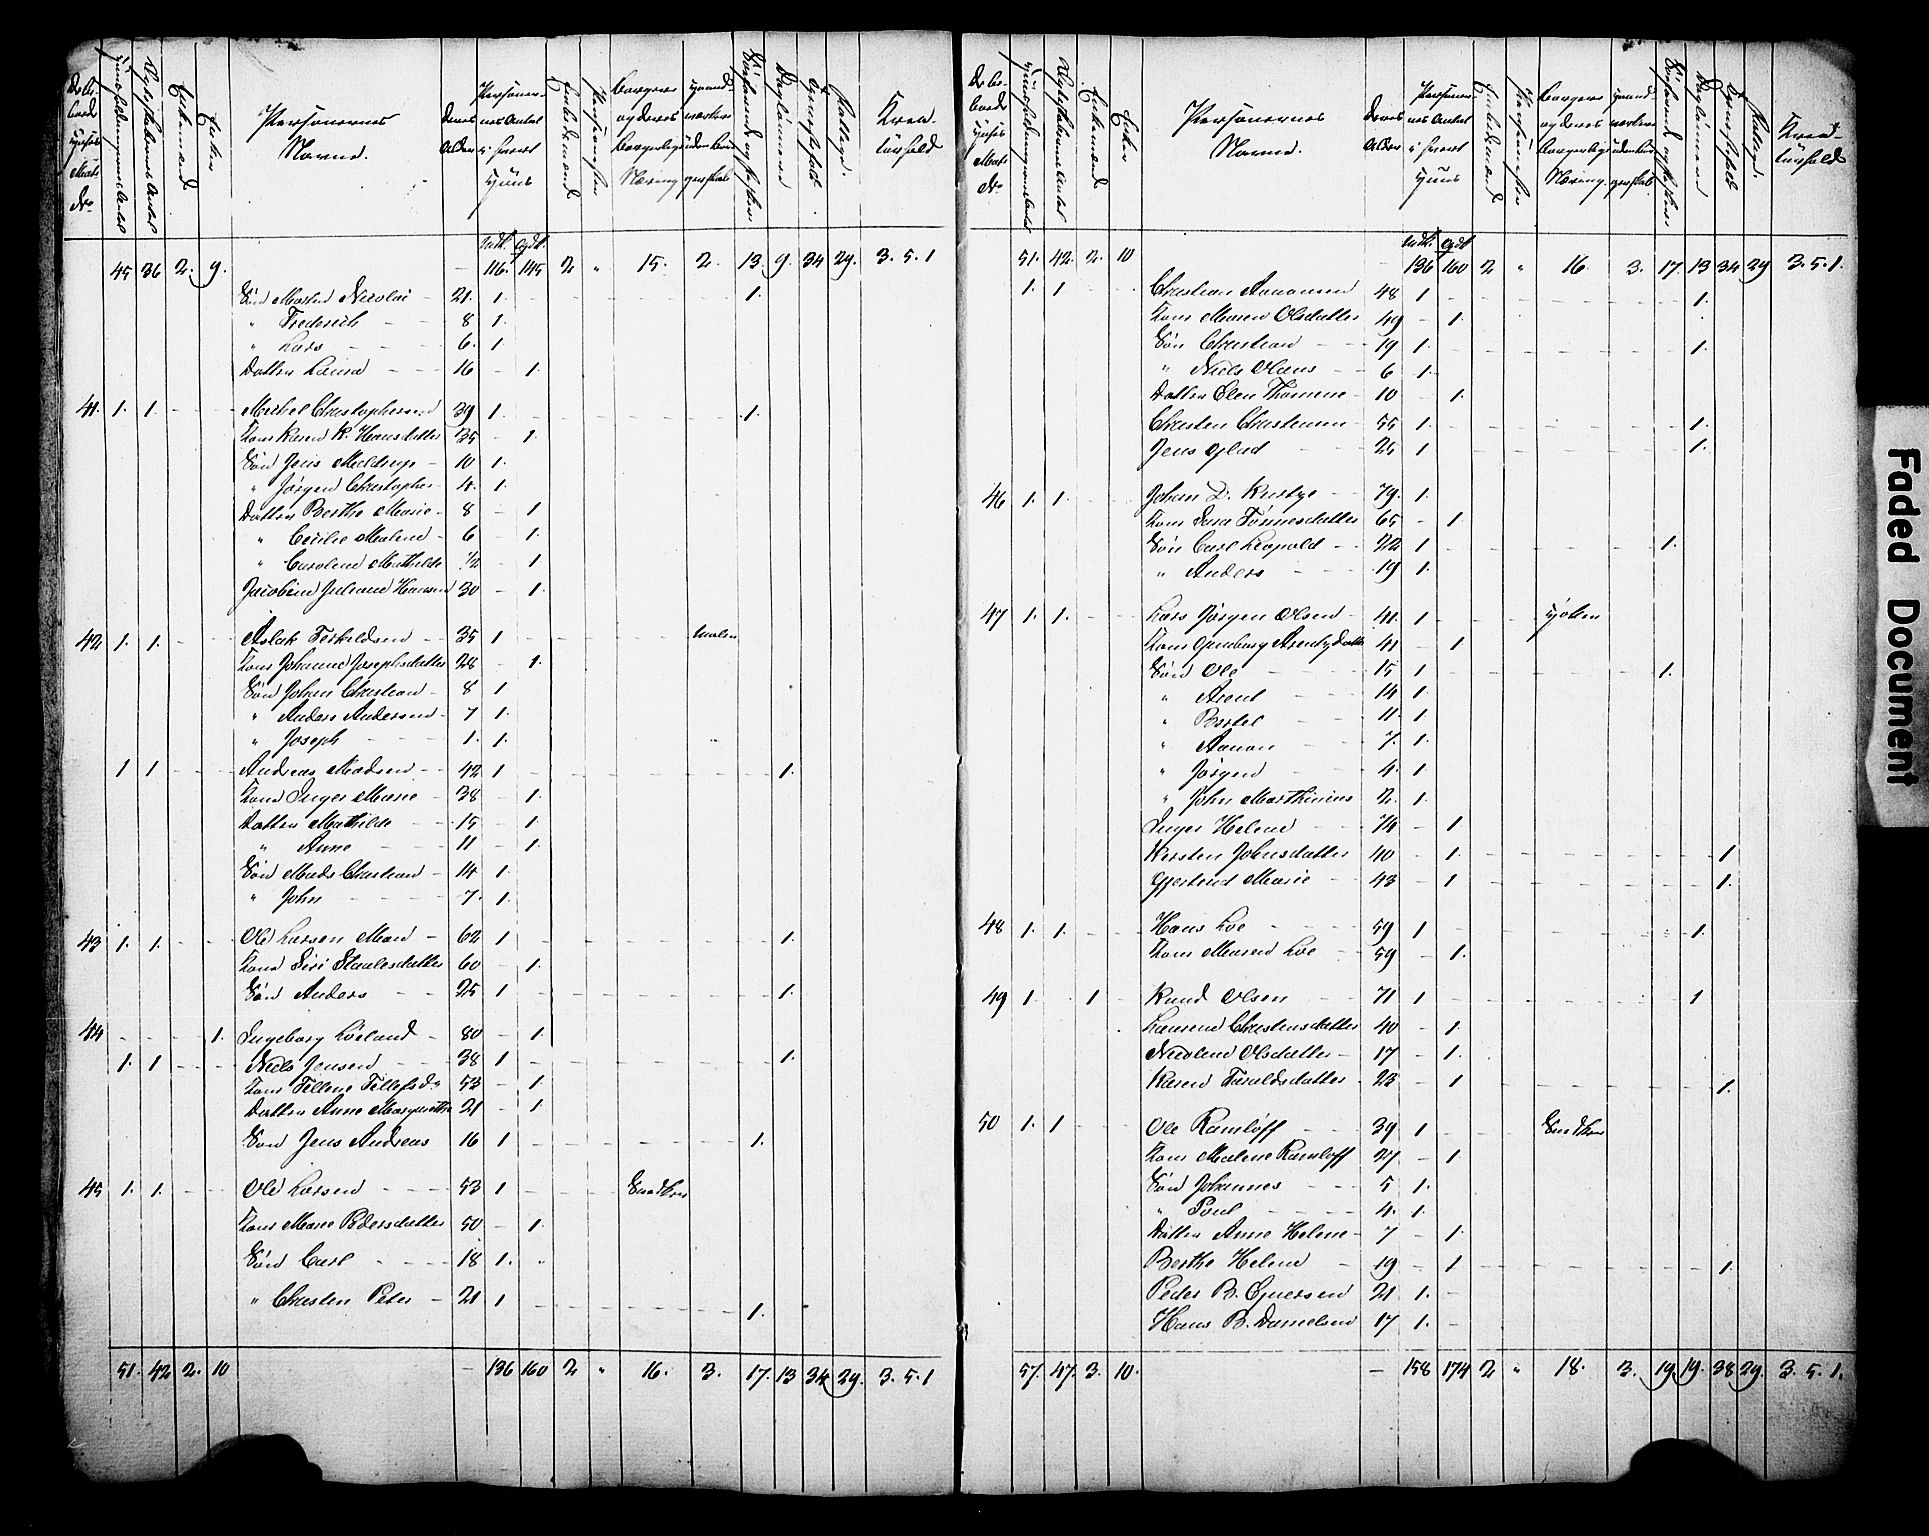 Personernes Navne.
Mdk. Qdk.
45 36 2. 9. - 116. 145 2 " 15. 2. 13. 9. 34 29. 3. 5. 1
Søn Morten Nicolai - 21. 1. 1.
" Frederich - - 8 1.
" Lars - - - 6. 1
Datter Laura - - 16 - 1.
41. 1. 1. - - Michel Christophersen 39 1. - - - - - 1.
Kone Karen K. Hansdatter 35 - 1.
Søn Jens Meldrup - 10 1.
" Jørgen Christopher - 4. 1.
Datter Berthe Marie - 8 - 1
" Cecilie Malene - 6 - 1.
" Caroline Mathilde 1/2 - 1
Jacobine Juliane Hansen 30 - 1.
42 1. 1. - - Aslak Terkeldsen - - 35 1 - - - - Maler
Kone Johanne Josephsdatter 28 - 1.
Søn Johan Christian - 8 1
" Anders Andersen - 7 1.
" Joseph - - - - 1. 1.
1 1 - - Andreas Madsen - - 42 1 - - - - - - 1.
Kone Inger Marie - 38 - 1.
Datter Mathilde - - 15 - 1.
" Anne - - - 11 - 1.
Søn Mads Christian - 14 1.
" John - - - - 7. 1.
43 1. 1. - - Ole Larsen Moen - 62 1 - - - - - - 1.
Kone Siri Staalesdatter 60 - 1.
Søn Anders - - 25 1 - - - - - - 1.
44 - - - 1. Ingeborg Løeland - 80 - 1
1. 1 - - Niels Jensen - - 38 1 - - - - - - 1.
Kone Tellene Tellefsd. 53 - 1.
Datter Anne Margrethe 21 - 1
Søn Jens Andreas 16 1 - - - - - 1.
45 1. 1. - - Ole Larsen - - - 53 1 - - -
Kone Marie Pedersdatter 50 - 1.
Søn Carl - - - - 18 1. -
" Christen Peter - 21 1 - - - - - 1.
51. 42 2. 10 - 136 160 2 " 16. 3. 17. 13 34 29. 3. 5. 1
Personernes Navne.
Mdk. Qdk
51. 42. 2. 10 136 160 2 " 16 3. 17. 13 34 29 3. 5. 1.
1. 1 - - Christian Aanonsen 48 1 - - - - - - 1.
Kone Maren Olsdatter 49 - 1.
Søn Christian - - - 19 1. - - - - - - 1.
" Niels Olaus - - 6 1.
Datter Elen Thomine - 10 - 1.
Christen Christensen - 55 1. - - - - - - 1.
Jens Glad - - - 25 1 - - - - - - 1.
46 1. 1. - - Johan D. - - 79. 1.
Kone Sara Tønnesdatter 65 - 1.
Søn Carl Leopold - - 22 1 - - - - - 1.
" Anders - - - 19 1.
47 1. 1. - - Lars Jørgen Olsen - 41. 1 - - -
Kone Ingeborg 41 - 1
Søn Ole - - - 15 1 - - - - - 1.
" Arent - - - 14 1.
" Bertel - - - 11. 1.
" Aanon - - 7. 1.
" Jørgen - - - 4. 1
" John Marthinius 2. 1.
Inger Helene - - 74 - 1
Kersten Johnsdatter 40 - 1. - - - - - - 1
Gjertrud Marie - - 43 - 1 - - - - - - 1.
48 1. 1. - - Hans Loe - - - 59 1 - - - - - - 1.
Kone Maren Loe - - 59 - 1.
49 1 1 - Knud Olsen - - 71 1 - - - - - - 1
Laurine Christensdatter 40 - 1.
Nicoline Olsdatter - 17 - 1.
Karen Taraldsdatter - 23 - 1 - - - - - - 1.
50 1. 1 - - Ole Ramløff - - 39 1 - - -
Kone Malene Ramløff 27 - 1.
Søn Johannes - - - 5 1.
" Poul - - - - 4. 1.
Datter Anne Helene - 7 - 1.
Berthe Helene - 19 - 1 - - - - - - 1.
Peder B. 21 1. -
Hans B. Danielsen 17 1. -
57. 47. 3. 10. - 158 174 2 " 18. 3. 19. 19. 38 29. 3. 5. 1.
Faded Document